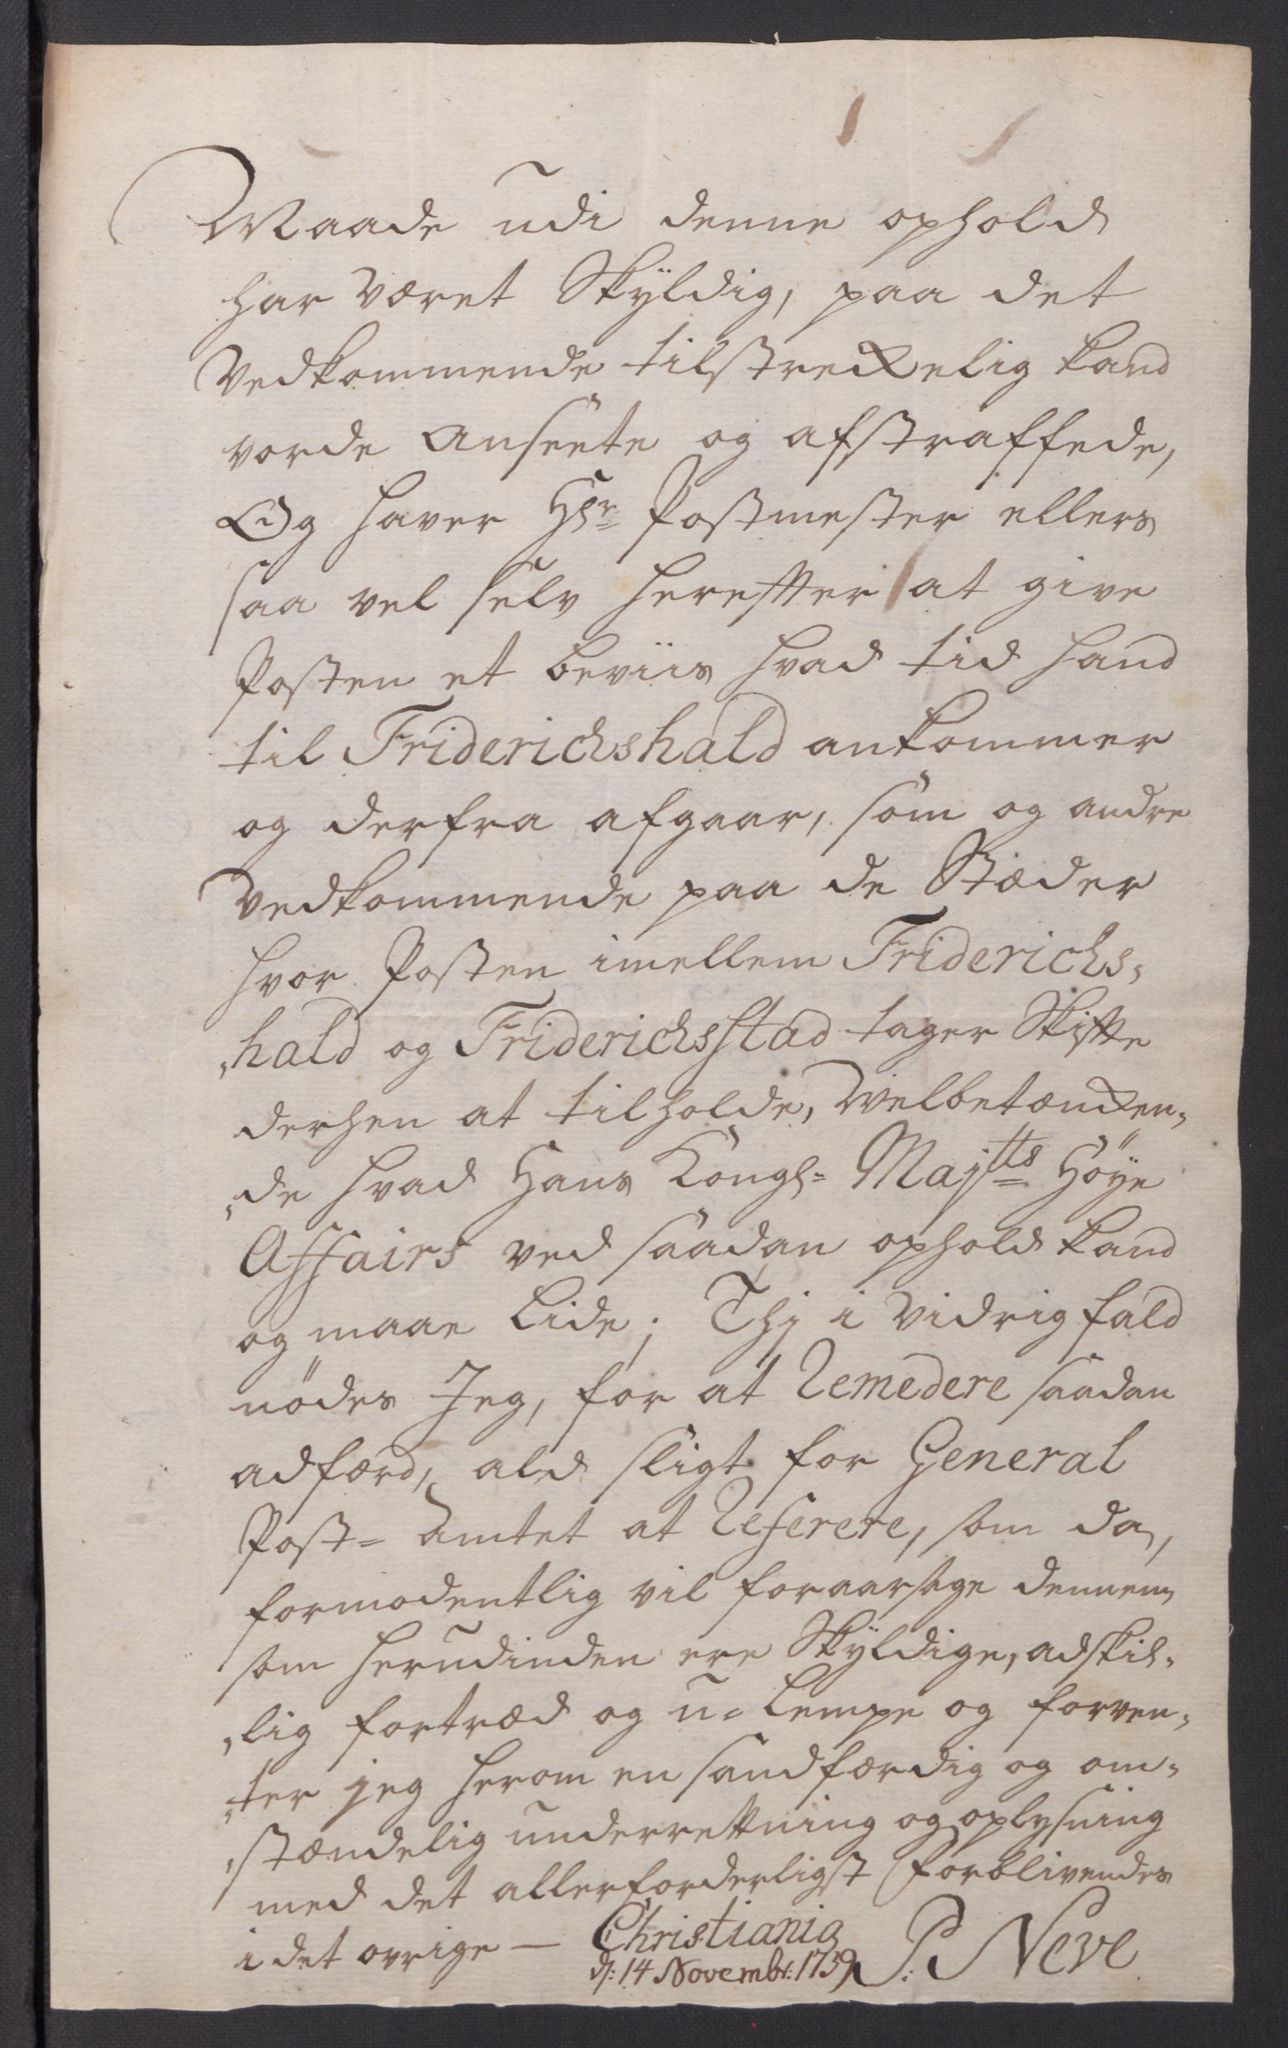 Maade udi denne ophold
har været Skÿldig, paa det
Vedkommende tilstreckelig kand
vorde anseete og afstraffede,
Og haver Hr: Postmester ellers
saa vel selv herefter at give
Posten et beviis hvad tid hand
til Friderichshald ankommer
og derfra afgaar, som og andre
Vedkommende paa de Stæder
hvor Posten imellem Friderichs,
,hald og Friderichsstad tager Skifte
derhen at tilholde, Velbetæncken,
,de hvad Hans Kongl= Maj.tts Höÿe
Affairs ved saadan ophold kand
og maae Lide; Thj i Vidrig fald
nödes Jeg, for at Remedere saadan
adfærd, ald sligt for General
Post= Amtet at Referere, som da,
formodentlig vil foraarsage dennem
som herudinden ere Skÿldige, adskil,
,lig fortræd og u=Lempe og forven,
,ter jeg herom en sandfærdig og om,
,stændelig underretning og oplysning
med det allerforderligst forblivendes
i det ovrige — Christiania
d: 14 Novembr: 1739 P: Neve